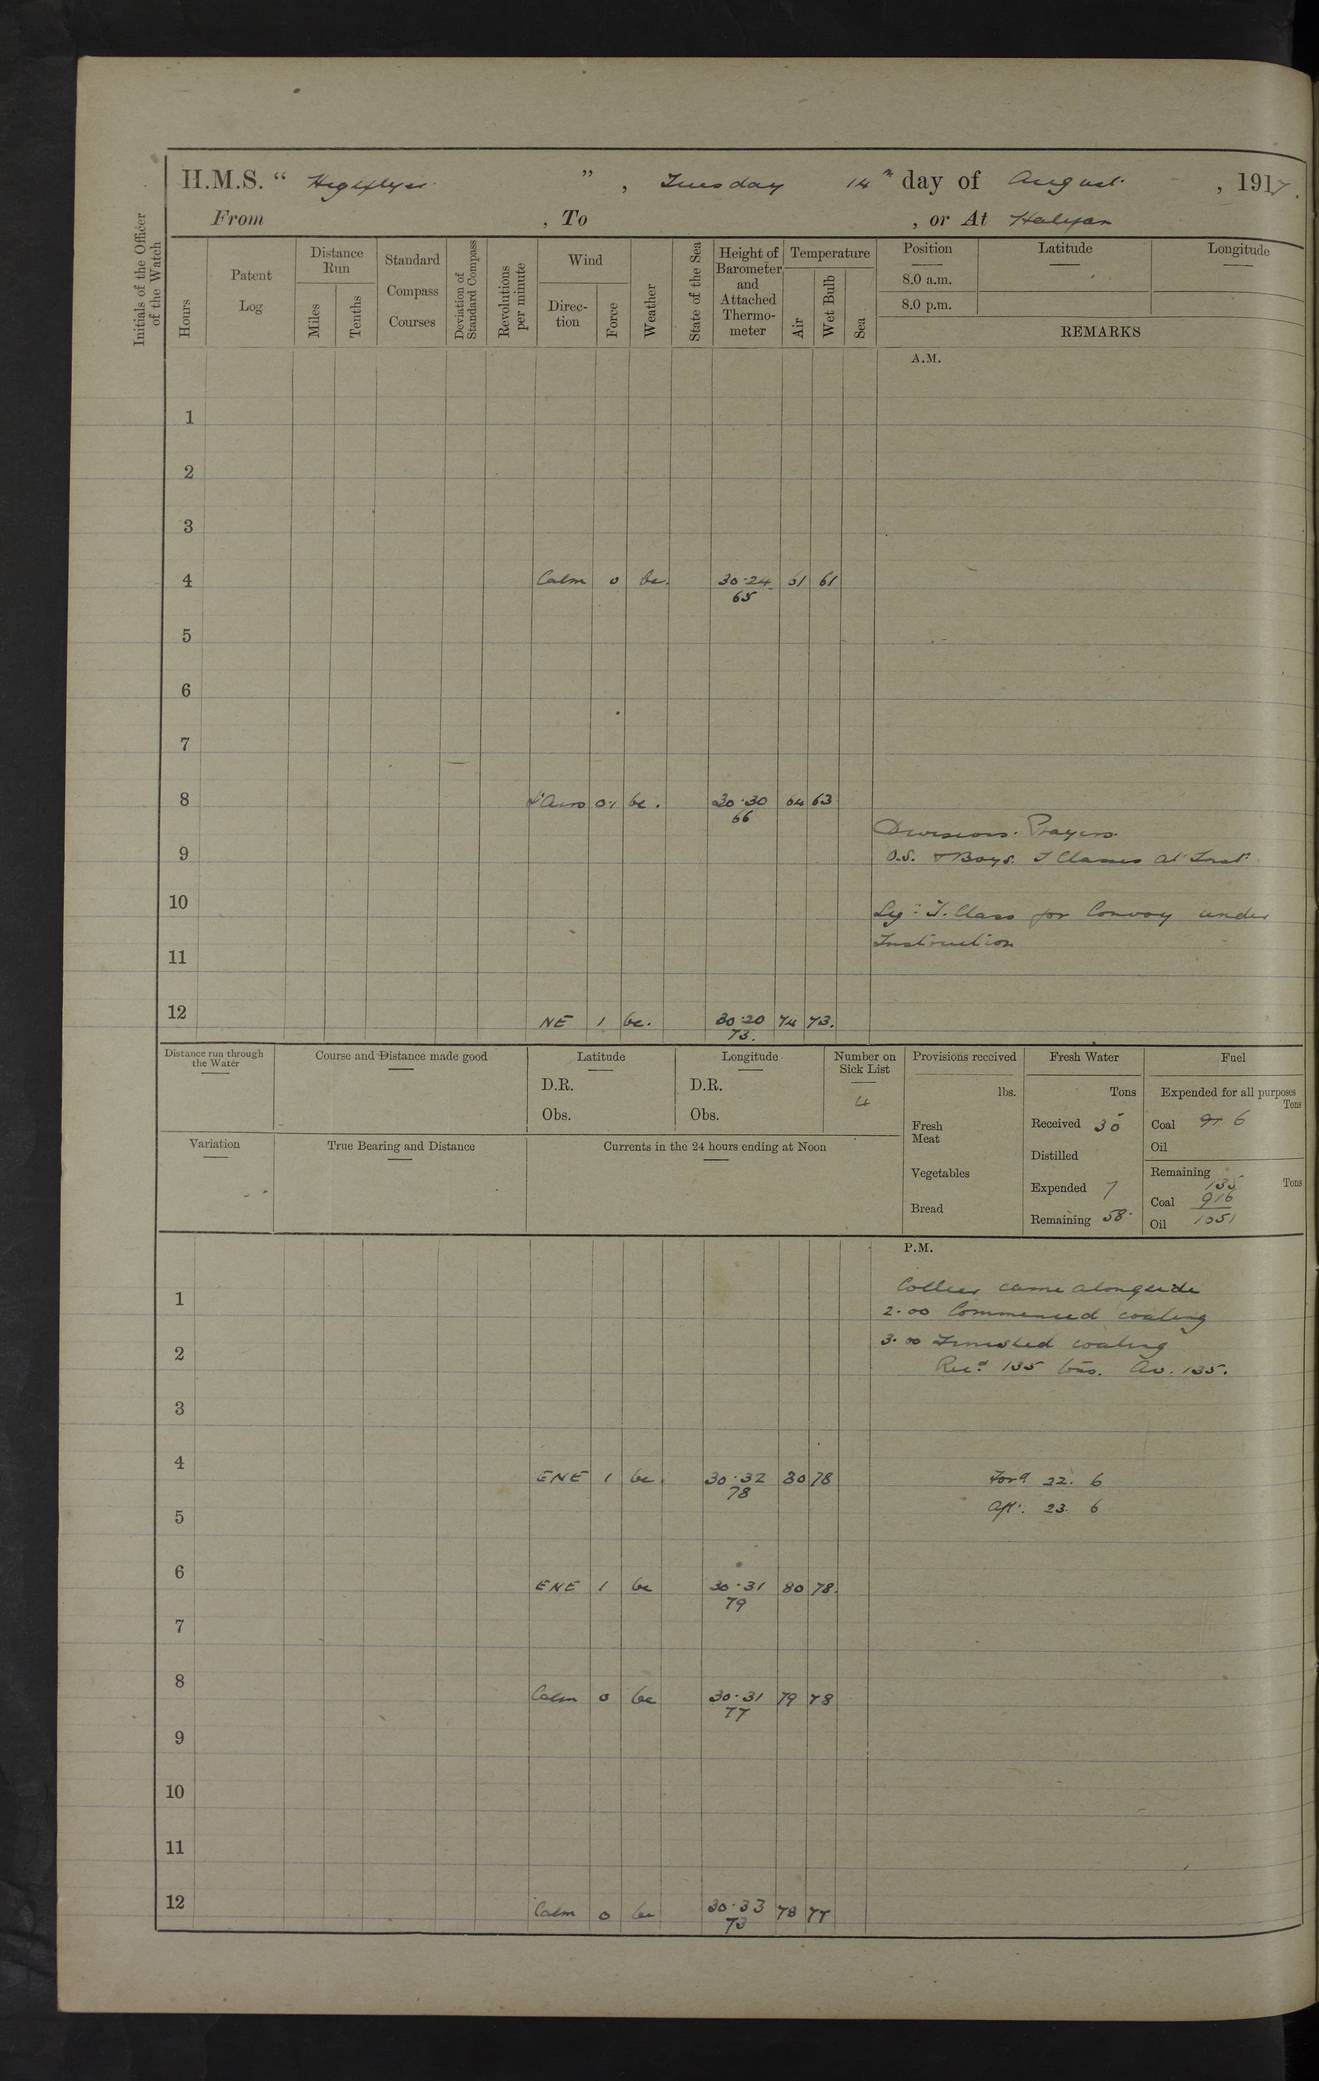 H.M.S. “ Highflyer ” , Tuesday 14th day of August , 1917.
From , To , or At Halifax
Initials of the Officer of the Watch
Hours
Patent Log
Distance Run
Miles
Tenths
Standard Compass Courses
Deviation of Standard Compass
Revolutions per minute
Wind
Direc-tion
Force
Weather
State of the Sea
Height of Barometer and Attached Thermo-meter
Temperature
Air
Wet Bulb
Sea
Position
Latitude
Longitude
8.0 a.m.
8.0 p.m.
REMARKS
A.M.
1
2
3
4 Calm 0 bc. 30.24 61 61
65
5
6
7
8 L'Airs 0.1 bc. 30.30 64 63
66
Divisions. Prayers.
9
O.S. & Boys. T Classes at Inst.
10
Sig: T. Class for Convoy under
Instruction
11
12 NE 1 bc. 30.20 74 73.
73.
Distance run through the Water
Course and Distance made good
Latitude
D.R.
Obs.
Longitude
D.R.
Obs.
Number on Sick List
4
Provisions received
lbs.
Fresh Meat
Vegetables
Bread
Fresh Water
Tons
Received 30
Distilled
Expended 7
Remaining 58
Fuel
Expended for all purposes
Tons
Coal 6
Oil
Remaining
Tons
135
Coal 916
Oil 1051
Variation
True Bearing and Distance
Currents in the 24 hours ending at Noon
P.M.
Collier came alongside
1
2.00 Commenced coaling
3.00 Finished coaling
2
Rec.d 135 tons. Av. 135.
3
4 ENE 1 bc 30.32 80 78
78
Ford 22. 6
Aft. 23. 6
5
6 ENE 1 bc 30.31 80 78.
79
7
8 Calm 0 bc 30.31 79 78
77
9
10
11
12 Calm 0 bc 30.33 78 77
73